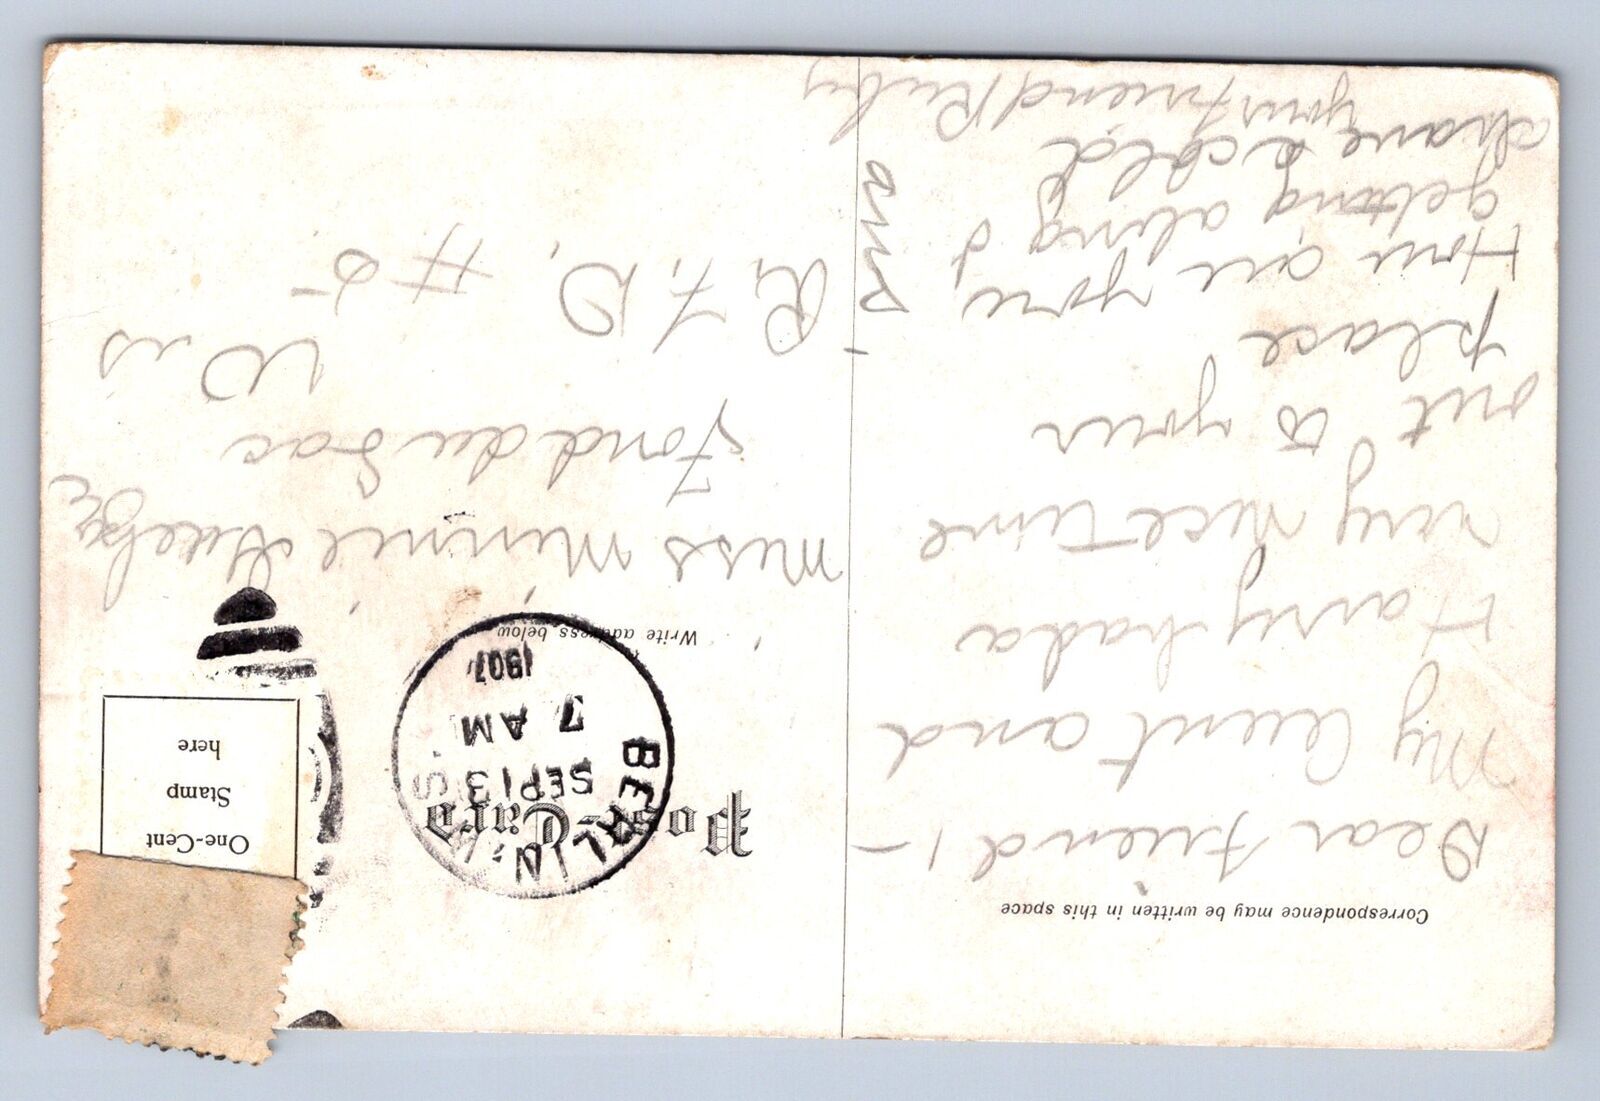 Correspondence may be written in this space
Dear Friend,-
My Aunt and
Harry had a
very nice time
out to your
place
How are you
getting along I
and
have a cold
your friend Ruby
Post-Card
BERLIN, WIS.
SEP 13
7 AM
1907
One-Cent
Stamp
here
Write address below
Miss Minnie
Fond du Lac
Wis
R, F, D, #5